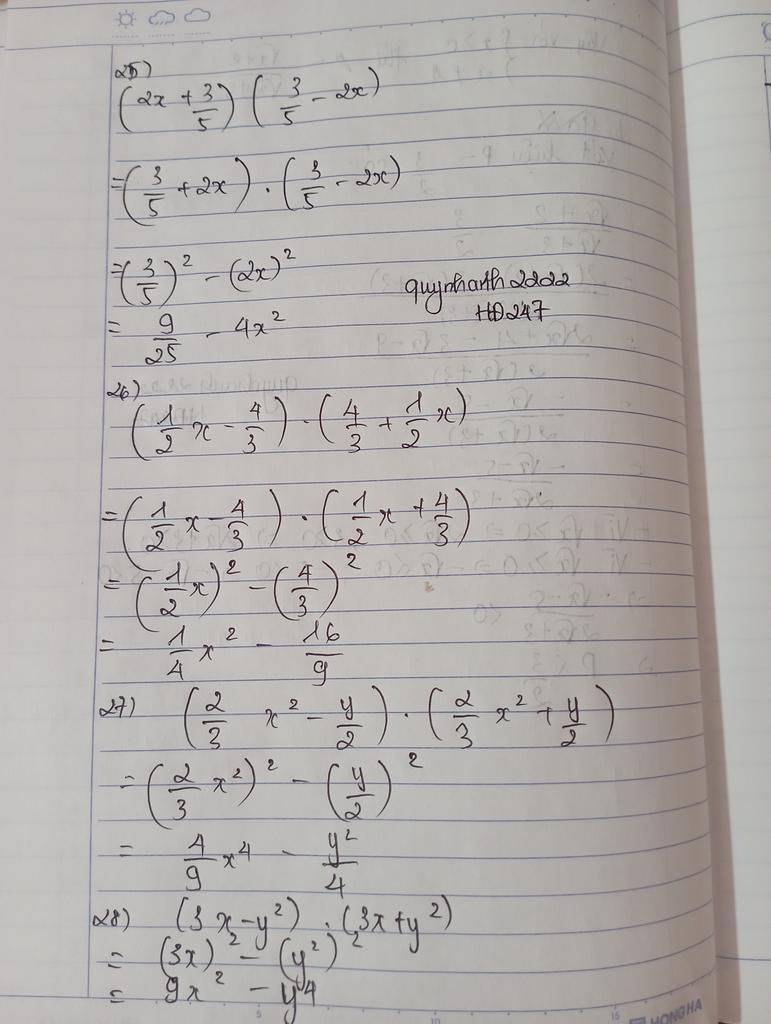 25)
(2x + 3/5) (3/5 - 2x)
= (3/5 + 2x) . (3/5 - 2x)
= (3/5)² - (2x)²
= 9/25 - 4x²
quynhanh2222
HD247
26)
(1/2 x - 4/3) . (4/3 + 1/2 x)
= (1/2 x - 4/3) . (1/2 x + 4/3)
= (1/2 x)² - (4/3)²
= 1/4 x² - 16/9
27) (2/3 x² - y/2) . (2/3 x² + y/2)
= (2/3 x²)² - (y/2)²
= 4/9 x⁴ - y²/4
28) (3x - y²) . (3x + y²)
= (3x)² - (y²)²
= 9x² - y⁴
5 10 15
HONG HA